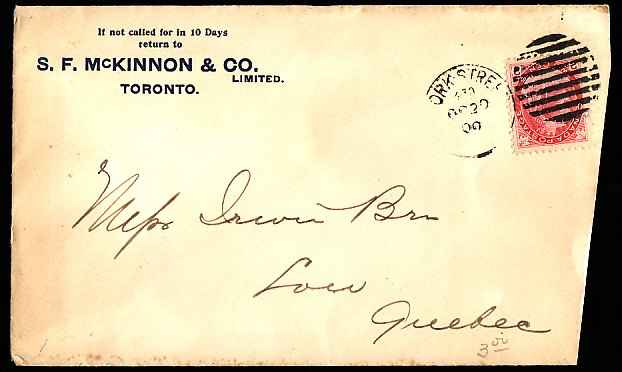 If not called for in 10 Days
return to
S. F. McKINNON & CO.
LIMITED.
TORONTO.
ORK STREE
29
00
CANADA POSTAGE
Messrs Irwin Bro
Low
Quebec
3 00